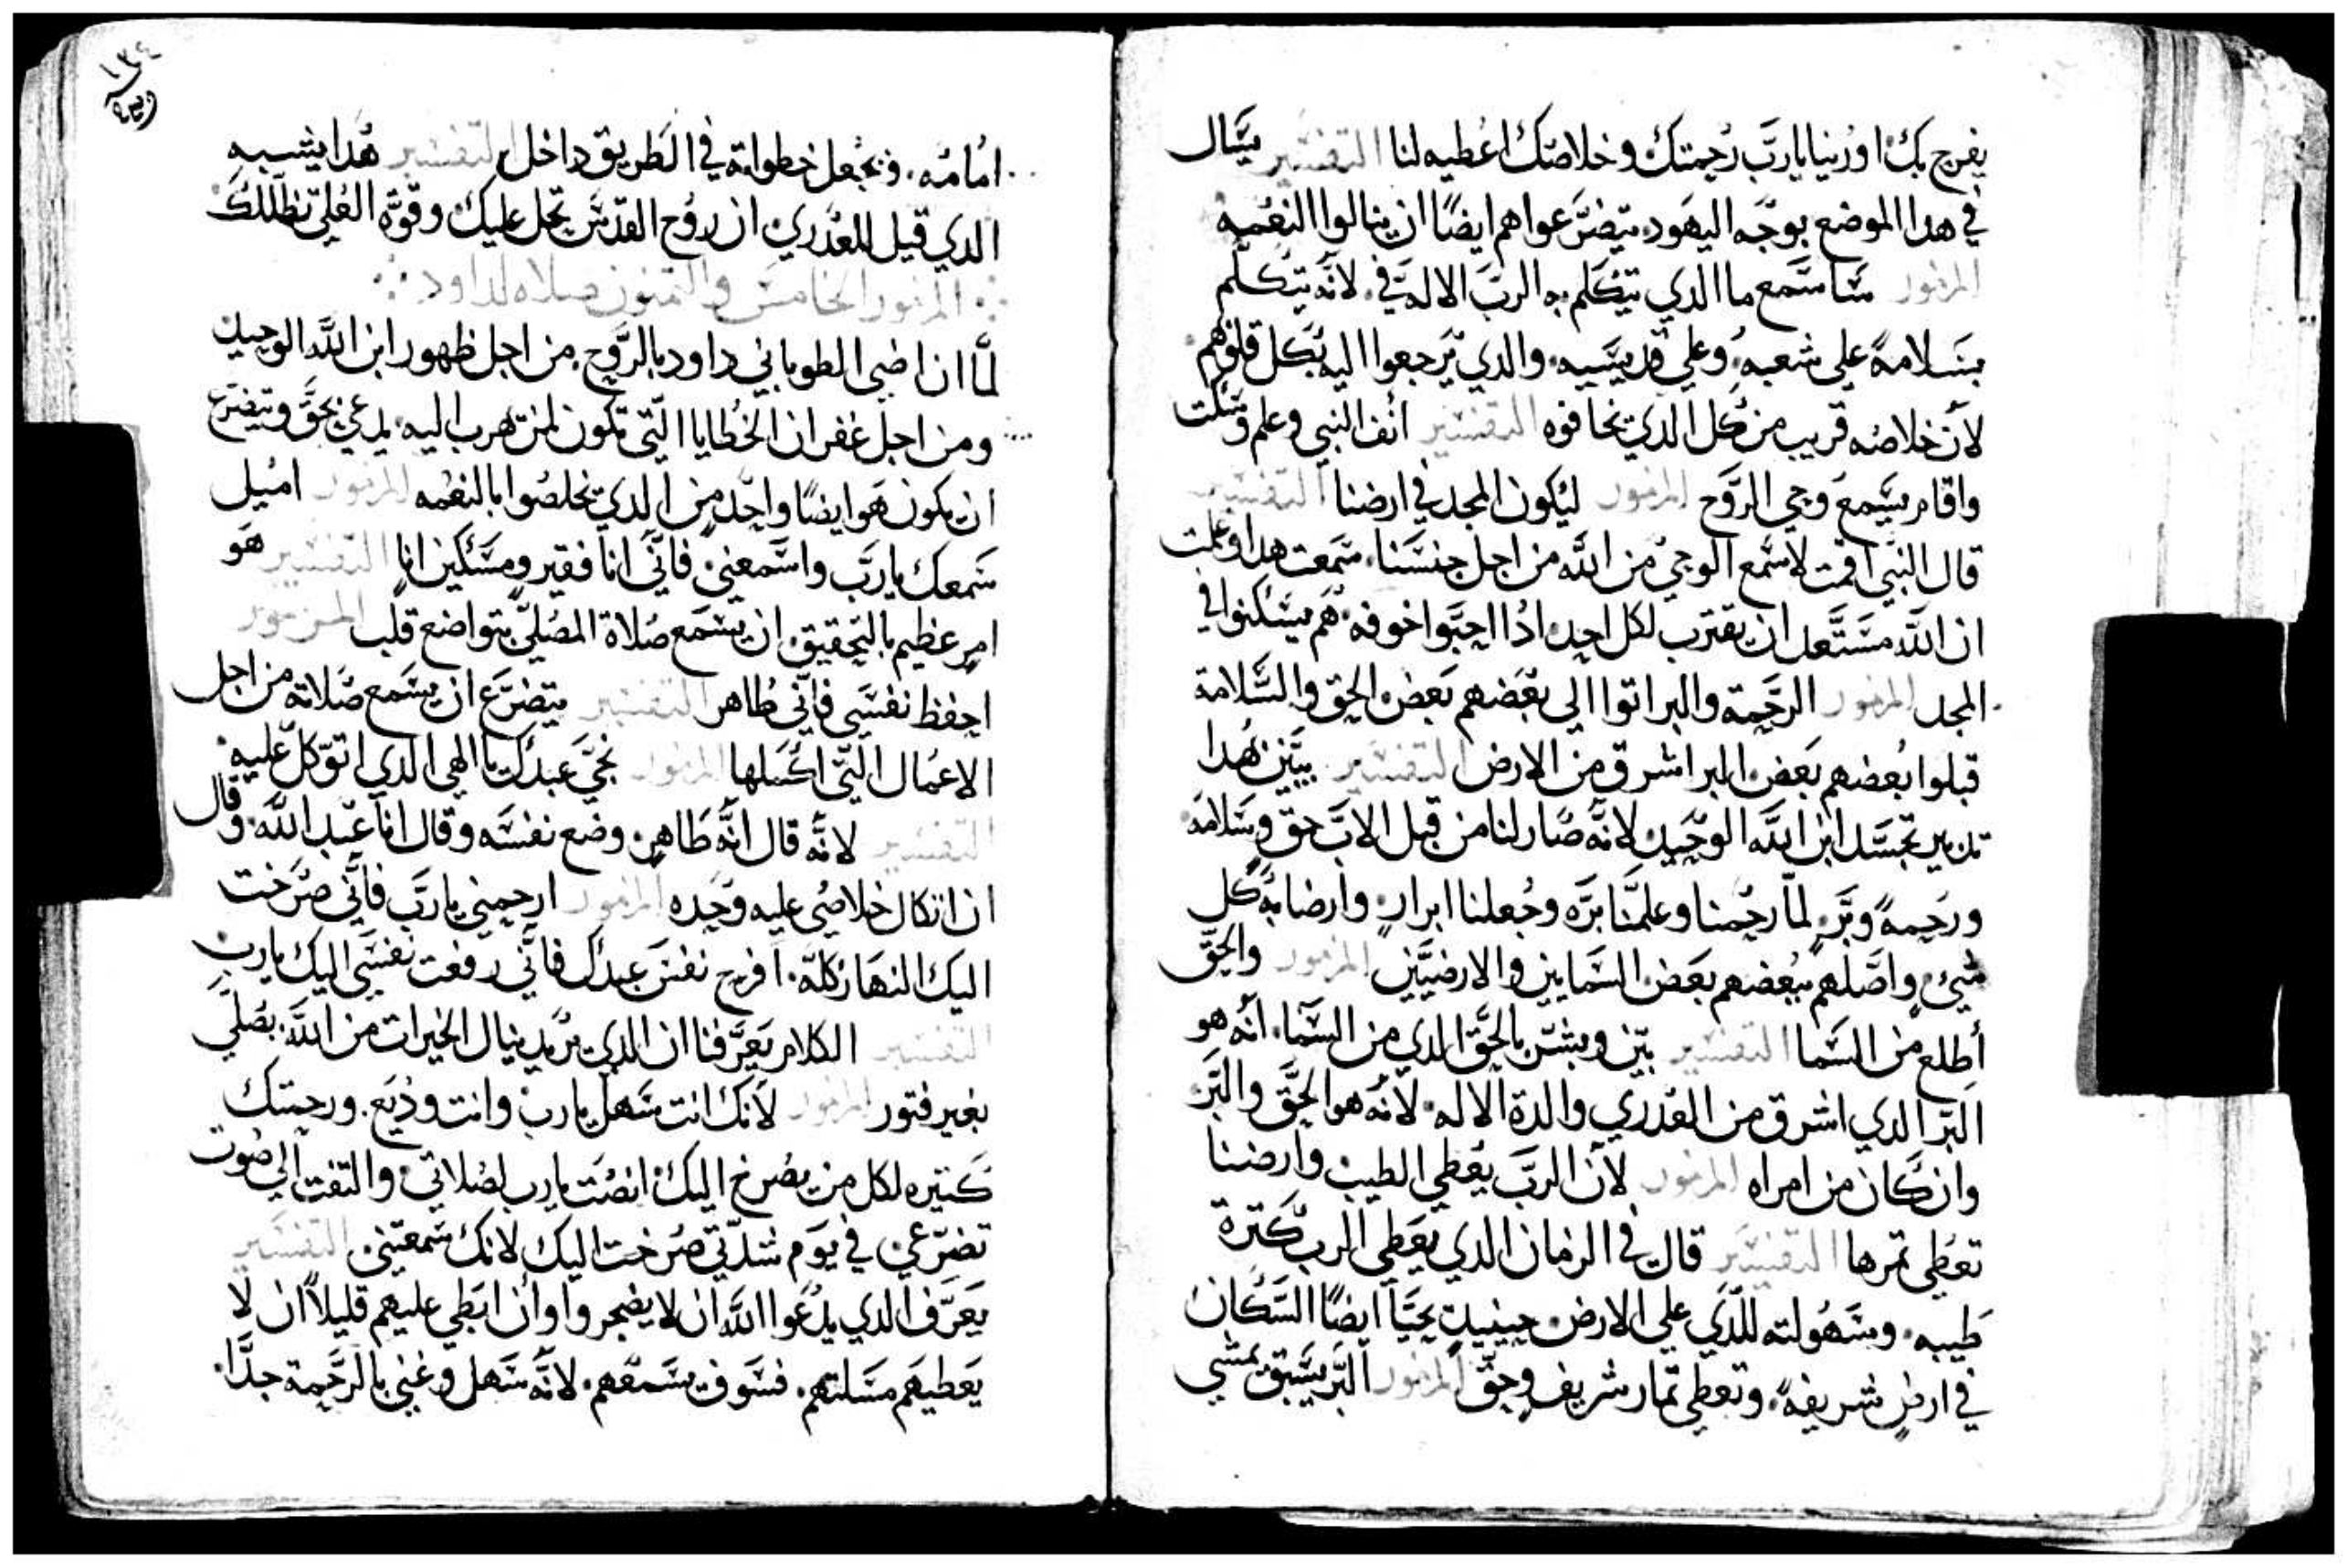 يفرح بك اورينا يارب رحمتك وخلاصك اعطيه لنا التفسير يسال
في هدا الموضع بوجه اليهود يتضرعوا هم ايضًا ان ينالوا النعمه
المزمور سااسمع ما الدي يتكلم به الرب الاله في لانه يتكلم
بسلامة على شعبه وعلى قديسيه والدي يرجعوا اليه بكل قلوبهم
لان خلاصه قريب من كل الدي يخافوه التفسير انف النبي وعلم وسكت
واقام يسمع وحي الروح المزمور ليكون المجد في ارضنا التفسير
قال النبي اقمت لاسمع الوحي من الله من اجل جنسنا سمعت هدا وعلمت
ان الله مستعد ان يقترب لكل احد ادا احبوا خوفه هم يسكنوا في
المجد المزمور الرحمة والبر اتوا الى بعضهم بعض الحق والسلامة
قبلوا بعضهم بعض البر اشرق من الارض التفسير يبين هدا
تدبير تجسد ابن الله الوحيد لانه صار لنا من قبل الاب حق وسلامه
ورحمة وبر لما رحمنا وعلمنا بره وجعلنا ابرار وارضا به كل
شيء واصلهم ببعضهم بعض السمايين والارضيين المزمور والحق
أطلع من السما التفسير بين وبشر بالحق الدي من السما انه هو
البر الدي اشرق من العدري والدة الاله لانه هو الحق والبر
وان كان من امراه المزمور لان الرب يعطي الطيب وارضنا
تعطي تمرها التفسير قال في الزمان الدي يعطي الرب كترة
طيبه وسهولته للدي على الارض حينيد يحيا ايضًا السكان
في ارض شريفة وتعطي تمار شريف وحق المزمور البر يسبق يمشي
١٣٤
امامه. ونجعل خطواته في الطريق داخل التفسير هدا يشبه
الدي قيل للعدري ان روح القدس تحل عليك وقوة العلي تظللك
المزمور الخامس والتمنون صلاه لداود
لما ان اضى الطوباني داود بالروح من اجل ظهور ابن الله الوحيد
ومن اجل غفران الخطايا التي تكون لمن هرب اليه يدعي بحق ويتضرع
ان يكون هو ايضًا واحد من الدي تخلصوا بالنعمه المزمور اميل
سمعك يارب واسمعني فاني انا فقير ومسكين انا التفسير هو
امر عظيم بالتحقيق ان يسمع صلاة المصلي بتواضع قلب المزمور
احفظ نفسي فاني طاهر التفسير يتضرع ان يسمع صلاته من اجل
الاعمال التي اكملها المزمور نجي عبدك يا الهي الدي اتوكل عليه
التفسير لانه قال انه طاهر وضع نفسه وقال انا عبد الله وقال
ان اتكال خلاصي عليه وحده المزمور ارحمني يارب فاني صرخت
اليك النهار كله. افرح نفس عبدك فاني رفعت نفسي اليك يارب
التفسير الكلام يعرفنا ان الدي يريد ينال الخيرات من الله يصلي
بغير فتور المزمور لانك انت سهل يارب وانت وديع. ورحمتك
كتيره لكل من يصرخ اليك انصت يارب لصلاتي والتفت الى صوت
تضرعي في يوم شدتي صرخت اليك لانك سمعتني التفسير
يعرف الدي يدعوا الله ان لا يضجروا وان ابطى عليهم قليلاً ان لا
يعطيهم مسلتهم. فسوف يسمعهم. لانه سهل وغني بالرحمة جدًا.